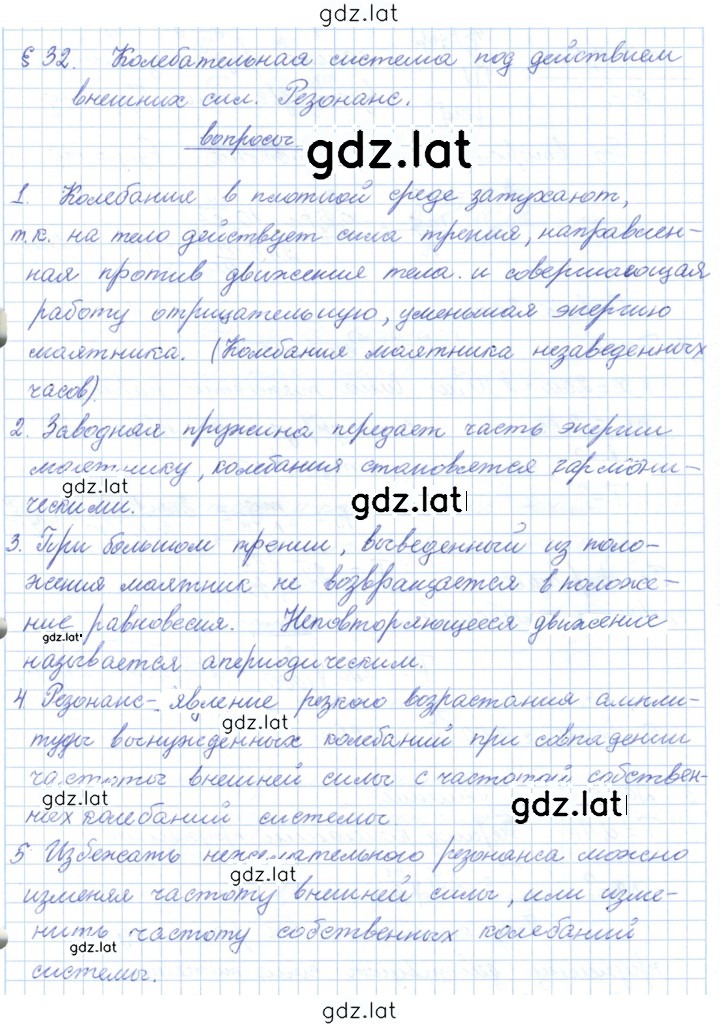 gdz.lat
§ 32. Колебательная система под действием
внешних сил. Резонанс.
вопросы
gdz.lat
1. Колебания в плотной среде затухают,
т.к. на тело действует сила трения, направлен-
ная против движения тела и совершающая
работу отрицательную, уменьшая энергию
маятника. (Колебания маятника незаведенных
часов).
2. Заводная пружина передает часть энергии
маятнику, колебания становятся гармони-
gdz.lat
gdz.lat
ческими.
3. При большом трении, выведенный из поло-
жения маятник не возвращается в положе-
ние равновесия. Неповторяющееся движение
gdz.lat
называется апериодическим.
4 Резонанс - явление резкого возрастания ампли-
gdz.lat
туды вынужденных колебаний при совпадении
частоты внешней силы с частотой собствен-
gdz.lat
gdz.lat
ных колебаний системы
5 Избежать нежелательного резонанса можно
gdz.lat
изменяя частоту внешней силы, или изме-
нить частоту собственных колебаний
gdz.lat
системы.
gdz.lat